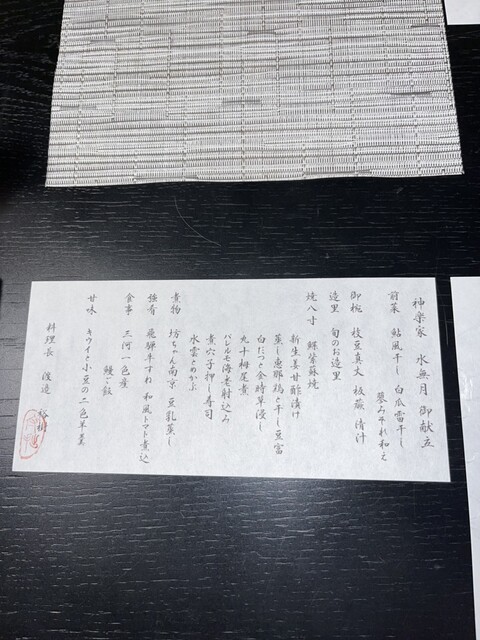 神楽家 水無月 御献立
前菜 鮎風干し 白瓜雷干し
蓼みぞれ和え
御椀 枝豆真丈 坂蕨 清汁
造里 旬のお造里
焼八寸 鱒紫蘇焼
新生姜甘酢漬け
蒸し恵那鶏と干し豆富
白だつと金時草浸し
丸十梅尾煮
パレルモ海老射込み
煮穴子押し寿司
水雲とめかぶ
煮物 坊ちゃん南京 豆乳蒸し
強肴 飛騨牛すね 和風トマト煮込
食事 三河一色産
鰻ご飯
甘味 キウイと小豆の二色羊羹
料理長 渡邉